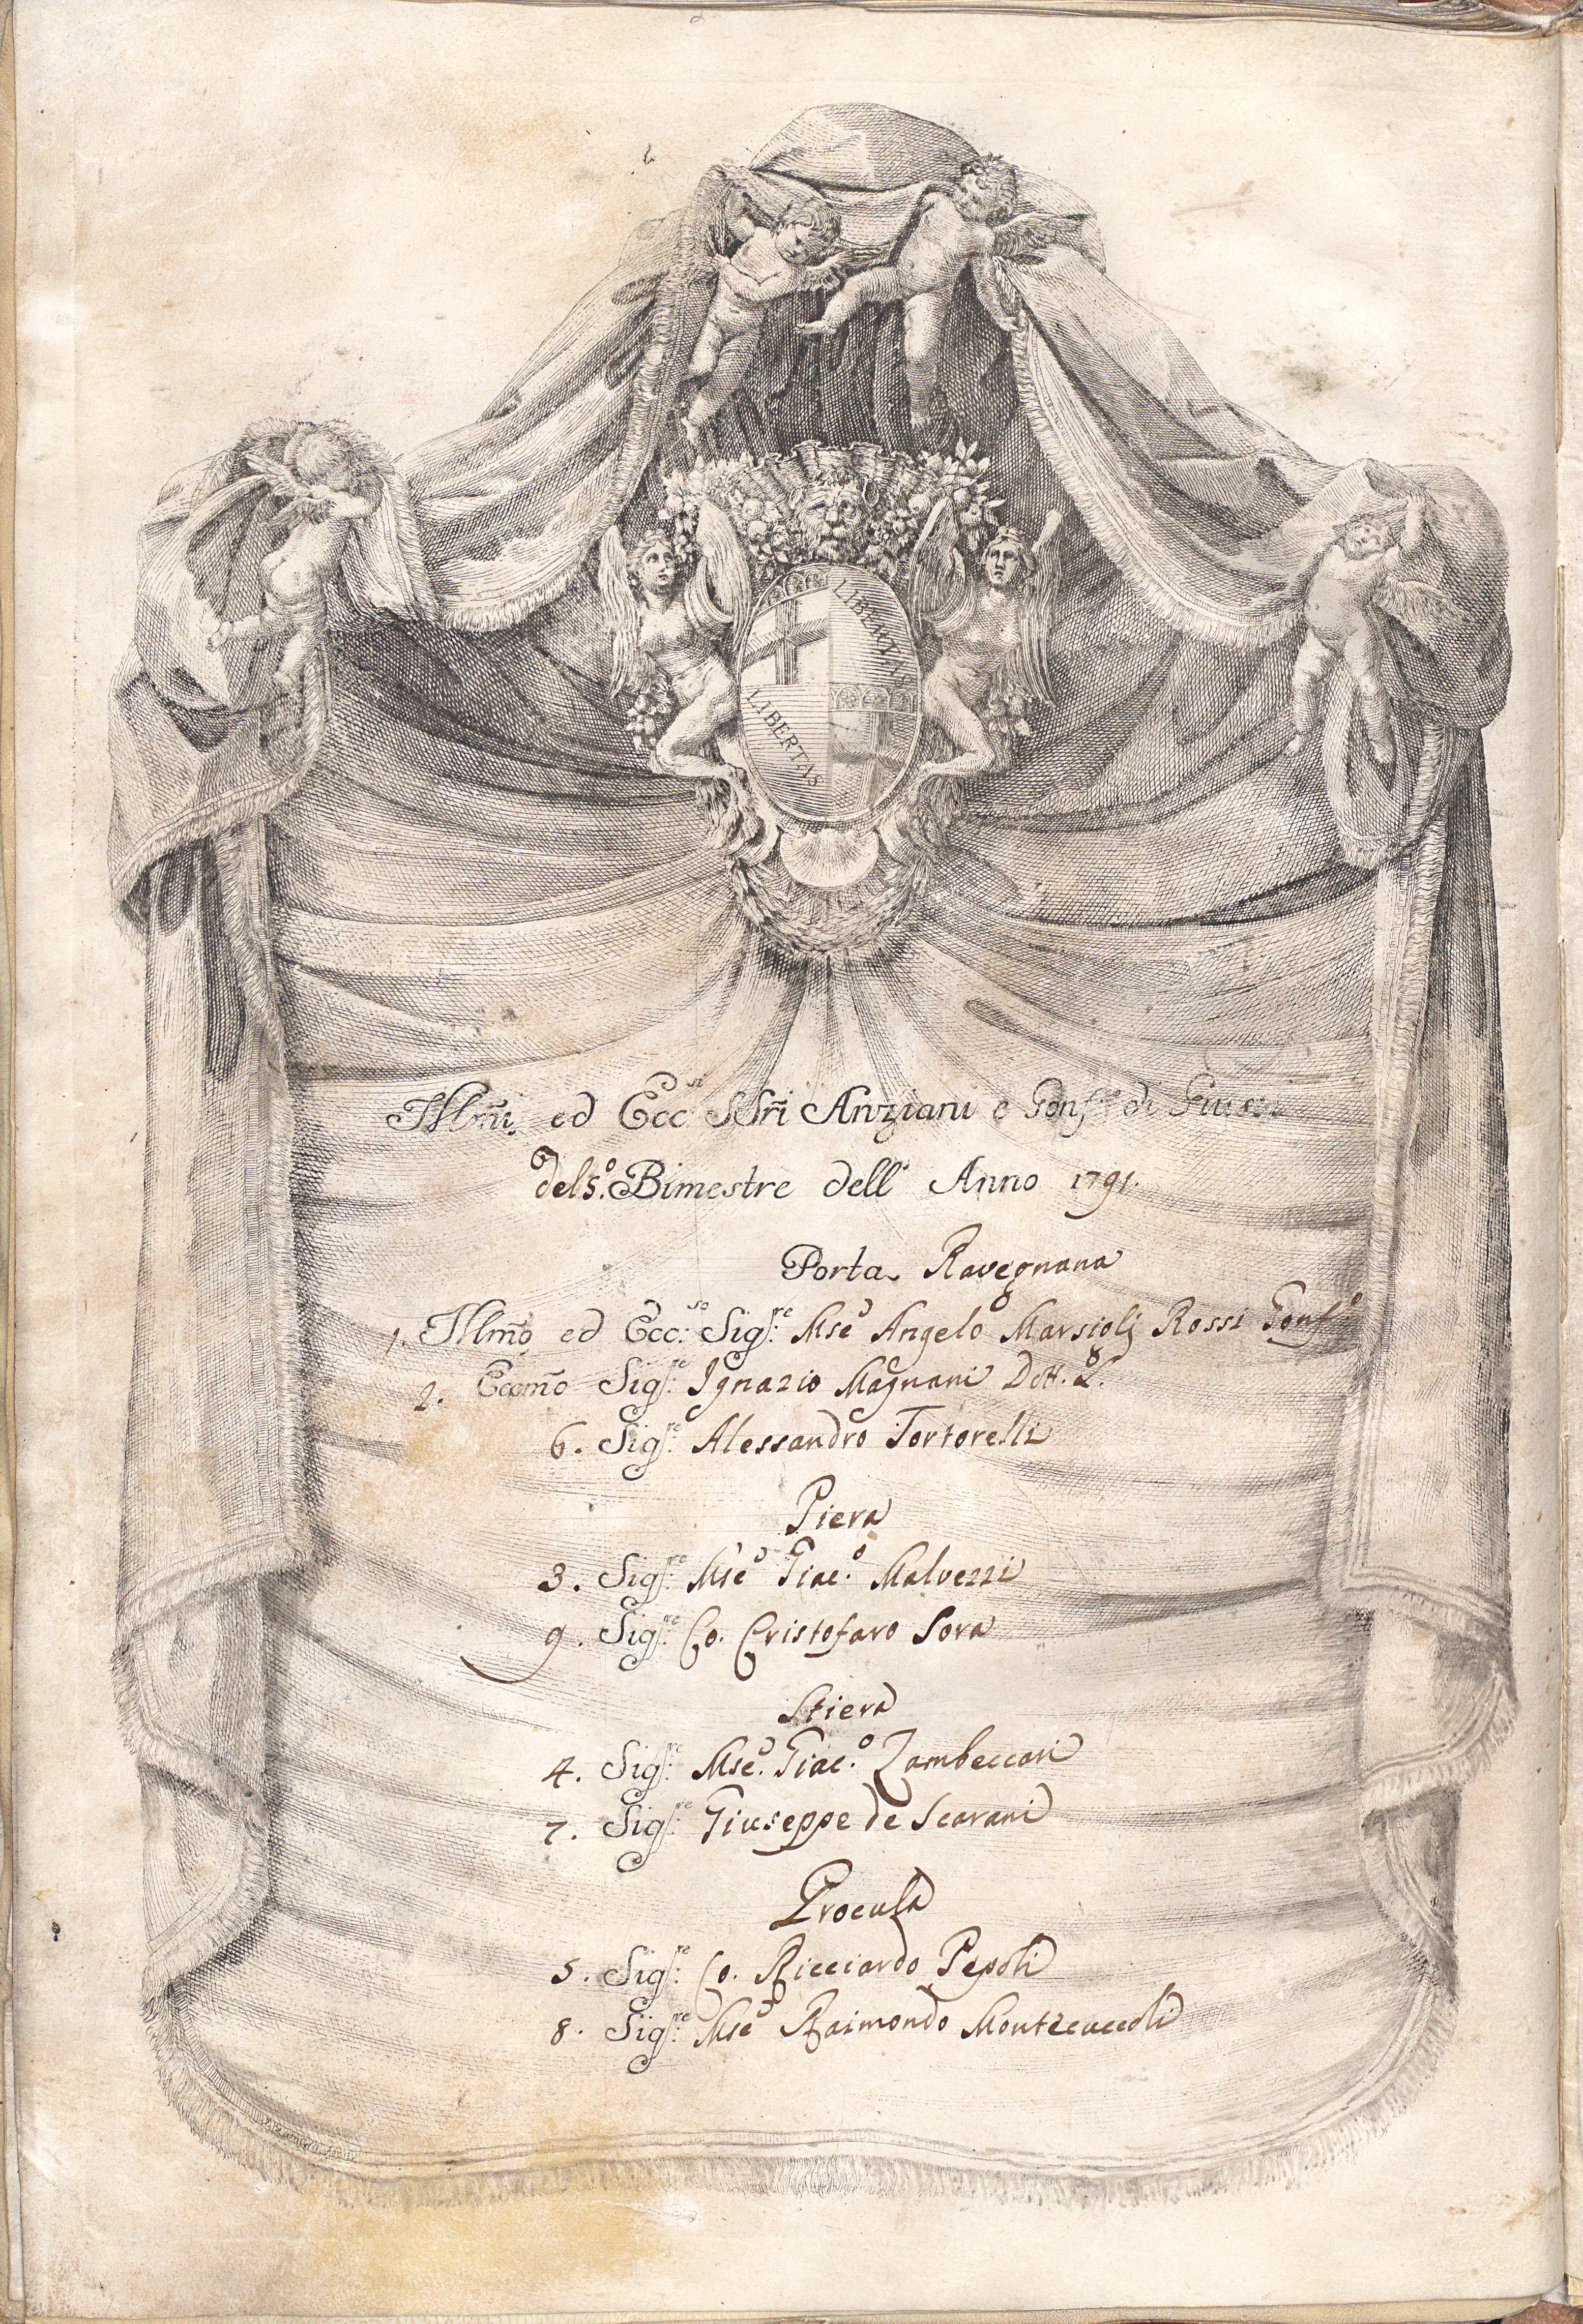 LIBERTAS
LIBERTAS
Illm̃i ed Ecc.si SSri Anziani e Gonf.re di Giust.
del 5.o Bimestre dell' Anno 1791.
Porta Ravegnana
1. Illm̃o ed Ecc:so Sig.re Mse Angelo Marsiolj Rossi Gonf.e
2. Eccmõ Sig.re Ignazio Magnani Dott. L.
6. Sig.re Alessandro Tortorelli
Piera
3. Sig.re Mse Giac.o Malvezzi
9. Sig.re Co. Cristofaro Sora
Stiera
4. Sig.re Mse. Giac.o Zambeccari
7. Sig.re Giuseppe de Scarani
Procula
5. Sig.re Co. Ricciardo Pepoli
8. Sig.re Mse Raimondo Montecuccoli